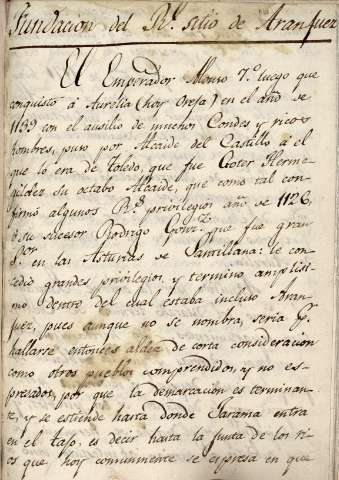 Fundacion del R.l sitio de Aranjuez
El Emperador Alonso 7.º luego que
conquisto á Aurelia (hoy Oreja) en el año de
1139 con el ausilio de muchos Condes y ricos
hombres, puso por Alcaide del Castillo á el
que lo era de Toledo, que fue Goter Herme
gildez su octabo Alcaide, que como tal con
firmó algunos R.s privilegios año de 1126,
ó su sucesor Rodrigo Gonz.z que fue gran
S.or en las Asturias de Santillana: le con
cedió grandes privilegios y termino amplisi
mo dentro del cual estaba incluso Aran
juez, pues aunque no se nombra, seria p.r
hallarse entonces aldea de corta consideracion
como otros pueblos comprendidos, y no es
presados, por que la demarcacion es terminan
te, y se estiende hasta donde Jarama entra
en el tajo, es decir hasta la junta de los ri
os que hoy comunmente se espresa en que